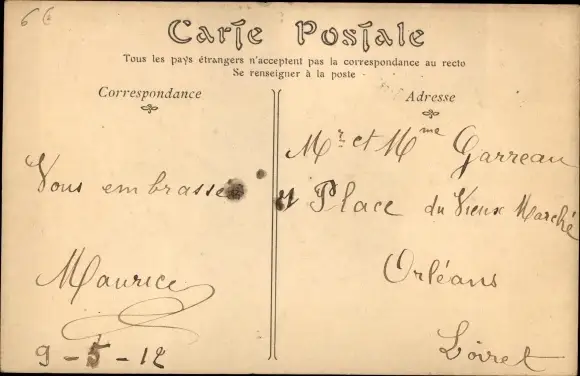 66
Carte Postale
Tous les pays étrangers n'acceptent pas la correspondance au recto
Se renseigner à la poste
Correspondance
Vous embrasse
Maurice
9-5-12
Adresse
Mr et Mme Garreau
Place du Vieux Marché
Orléans
Loiret